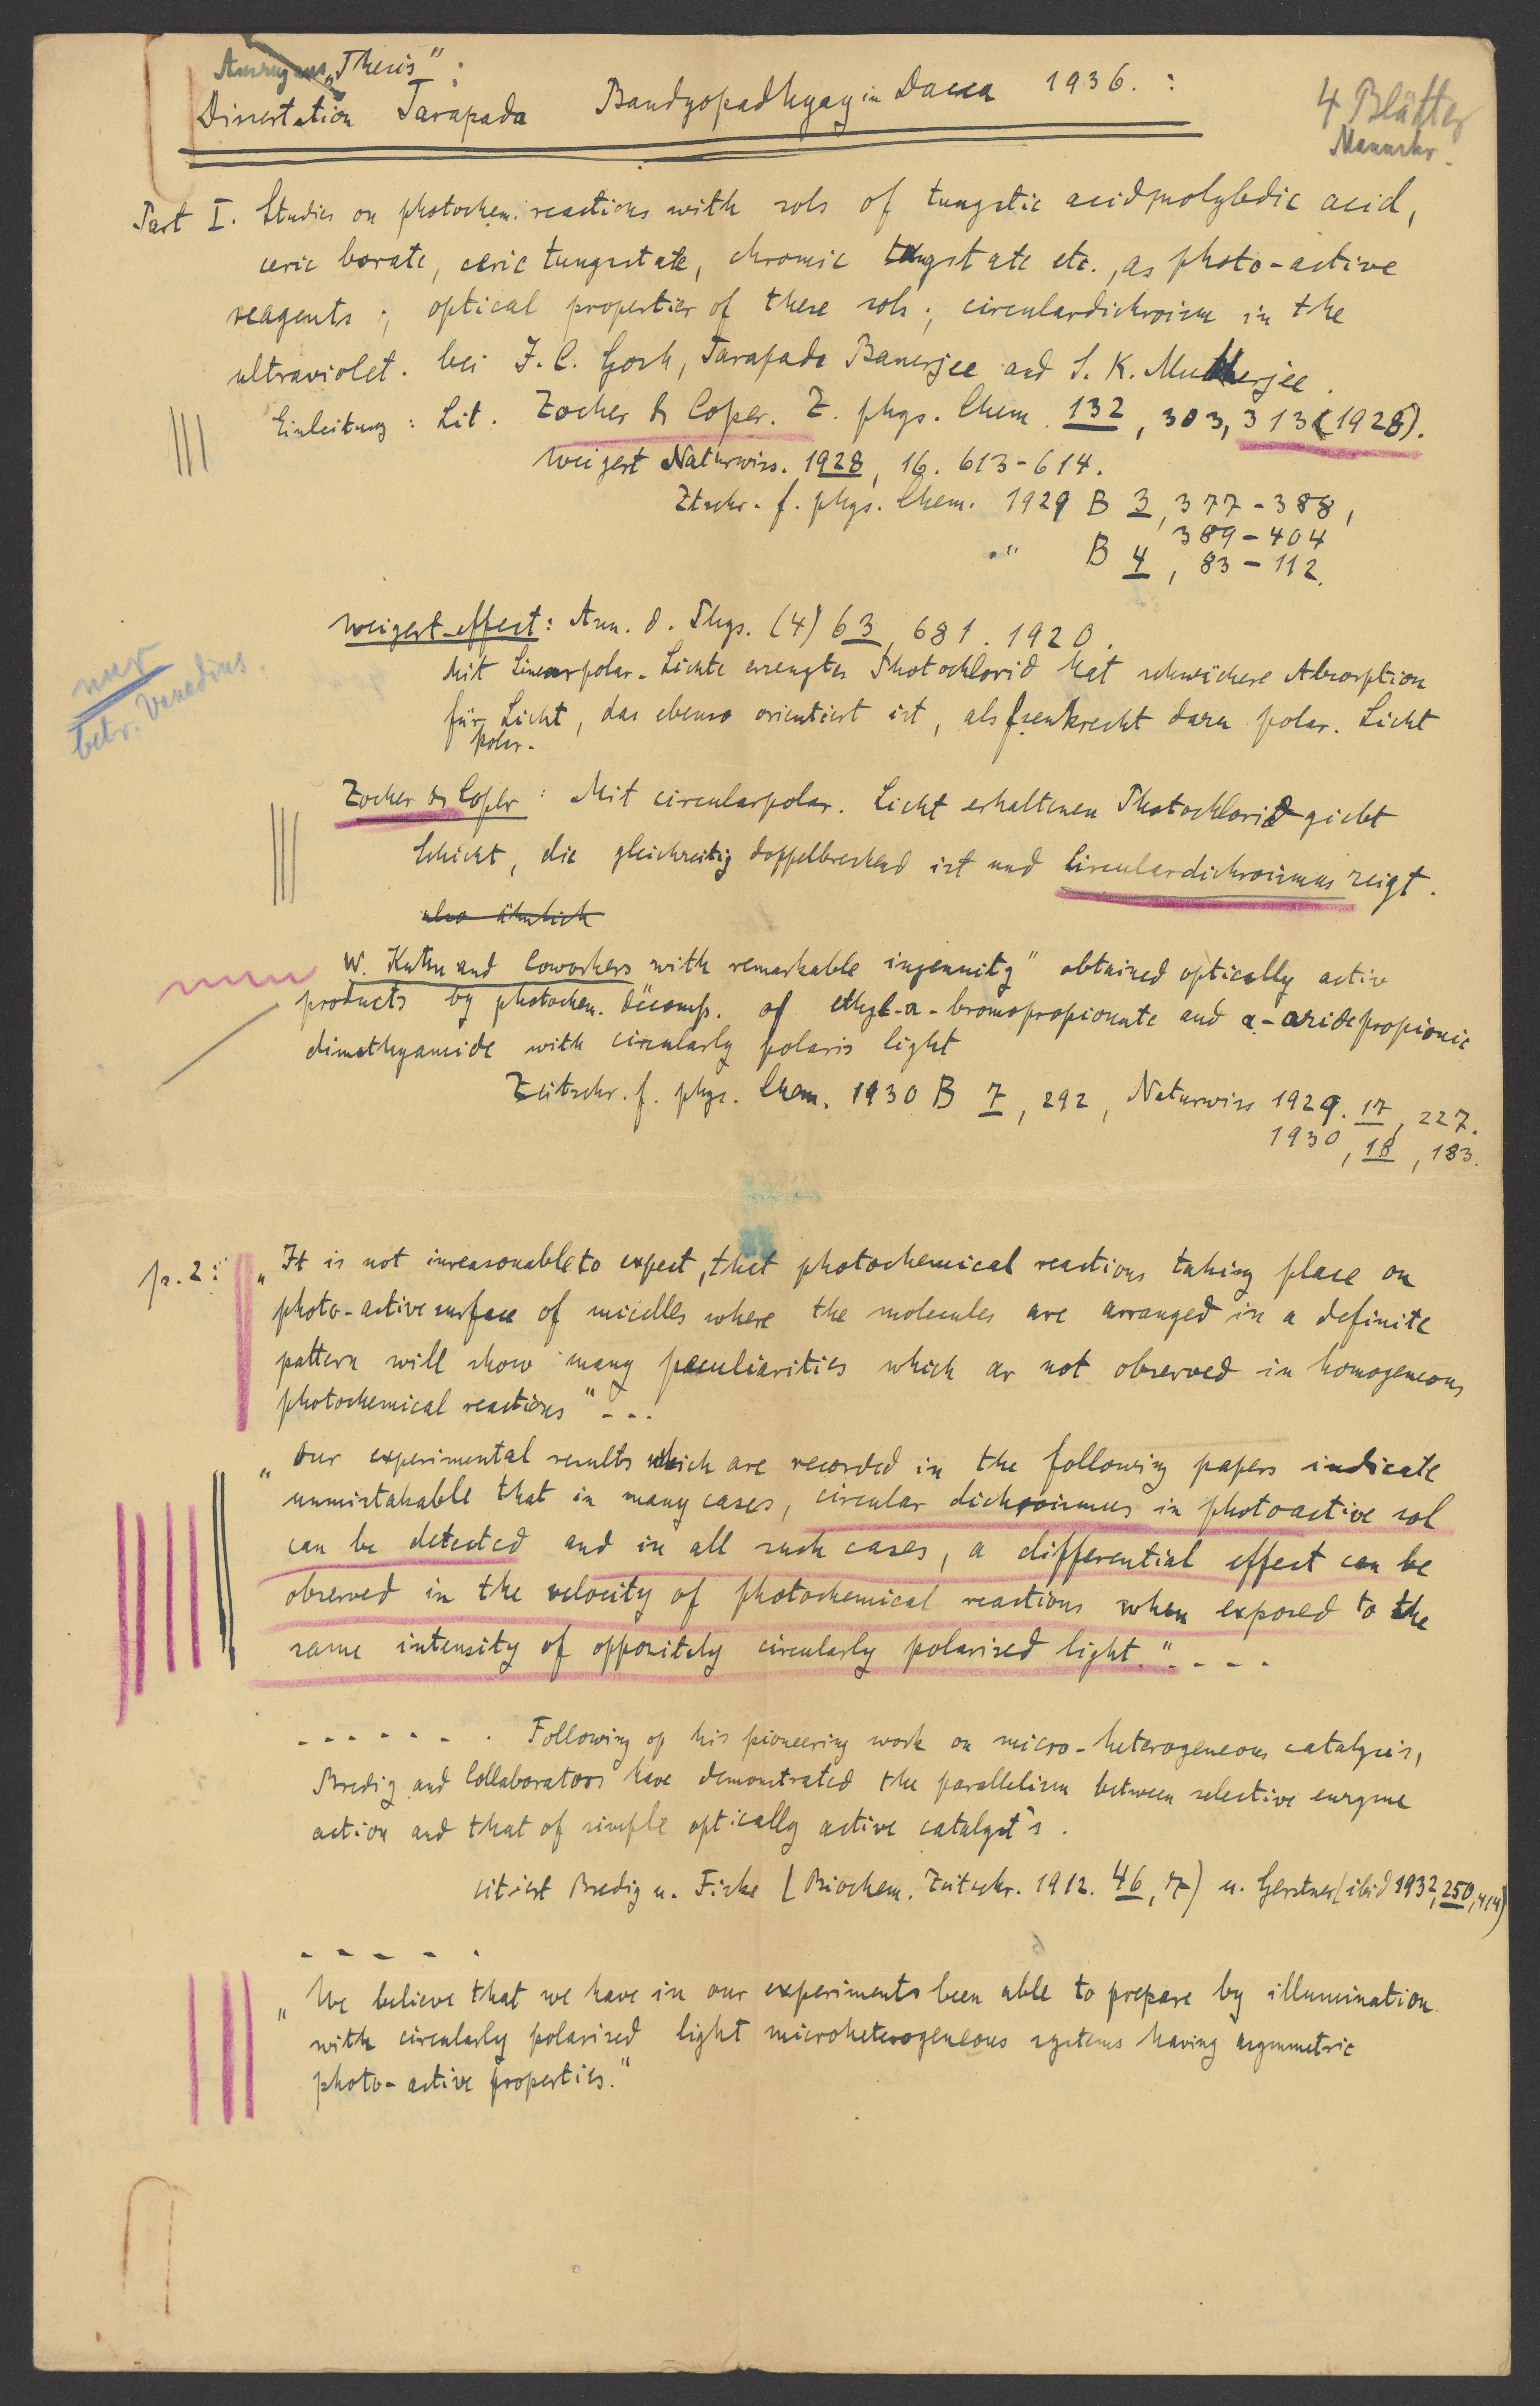 Auszug aus "Thesis":
Dissertation Tarapada Bandyopadhyay in Dacca 1936. :
4 Blätter
Manuskr.
Part I. Studies on photochem. reactions with sols of tungstic acid, molybdic acid,
ceric borate, ceric tungstate, chromic tungstate etc., as photo-active
reagents; optical properties of these sols; circulardichroism in the
ultraviolet. bei J. C. Gosh, Tarapada Banerjee and S. K. Mukherjee.
Einleitung: Lit. Zocher & Coper. Z. phys. Chem. 132, 303, 313 (1928).
Weigert Naturwiss. 1928, 16. 613-614.
Ztschr. f. phys. Chem. 1929 B 3, 377-388,
389-404
" B 4, 83-112.
Weigert-effect: Ann. d. Phys. (4) 63, 681. 1920.
Mit linearpolar. Lichte erzeugtes Photochlorid hat schwächere Absorption
für Licht, das ebenso orientiert ist, als senkrecht dazu polar. Licht
polar.
nur
betr. Vanadins.
Zocher & Coper: Mit circularpolar. Licht erhaltenen Photochlorid giebt
Schicht, die gleichzeitig doppelbrechend ist und Circulardichroismus zeigt.
also ähnlich
W. Kuhn and Coworkers with remarkable ingenuity" obtained optically active
products by photochem. decomp. of ethyl-α-bromopropionate and α-azidepropionic
dimethyamide with circularly polaris light
Zeitschr. f. phys. Chem. 1930 B 7, 292, Naturwiss 1929. 17, 227.
1930, 18, 183.
p. 2: "It is not inreasonable to expect, that photochemical reactions taking place on
photo-active surface of micelles where the molecules are arranged in a definite
pattern will show many peculiarities which ar not observed in homogeneous
photochemical reactions" ---
"Our experimental results which are recorded in the following papers indicate
unmistakable that in many cases, circular dichroismus in photoactive sol
can be detected and in all such cases, a differential effect can be
observed in the velocity of photochemical reactions when exposed to the
same intensity of oppositely circularly polarised light.". - - -
- - - - - - . Following op his pioneering work on micro-heterogeneous catalysis,
Bredig and Collaborators have demonstrated the parallelism between selective enzyme
action and that of simple optically active catalyst's.
citiert Bredig u. Fiske (Biochem. Zeitschr. 1912. 46, 7) u. Gerstner (ibid 1932, 250, 414)
- - - - .
"We believe that we have in our experiments been able to prepare by illumination
with circularly polarised light microheterogeneous systems having asymmetric
photo-active properties."